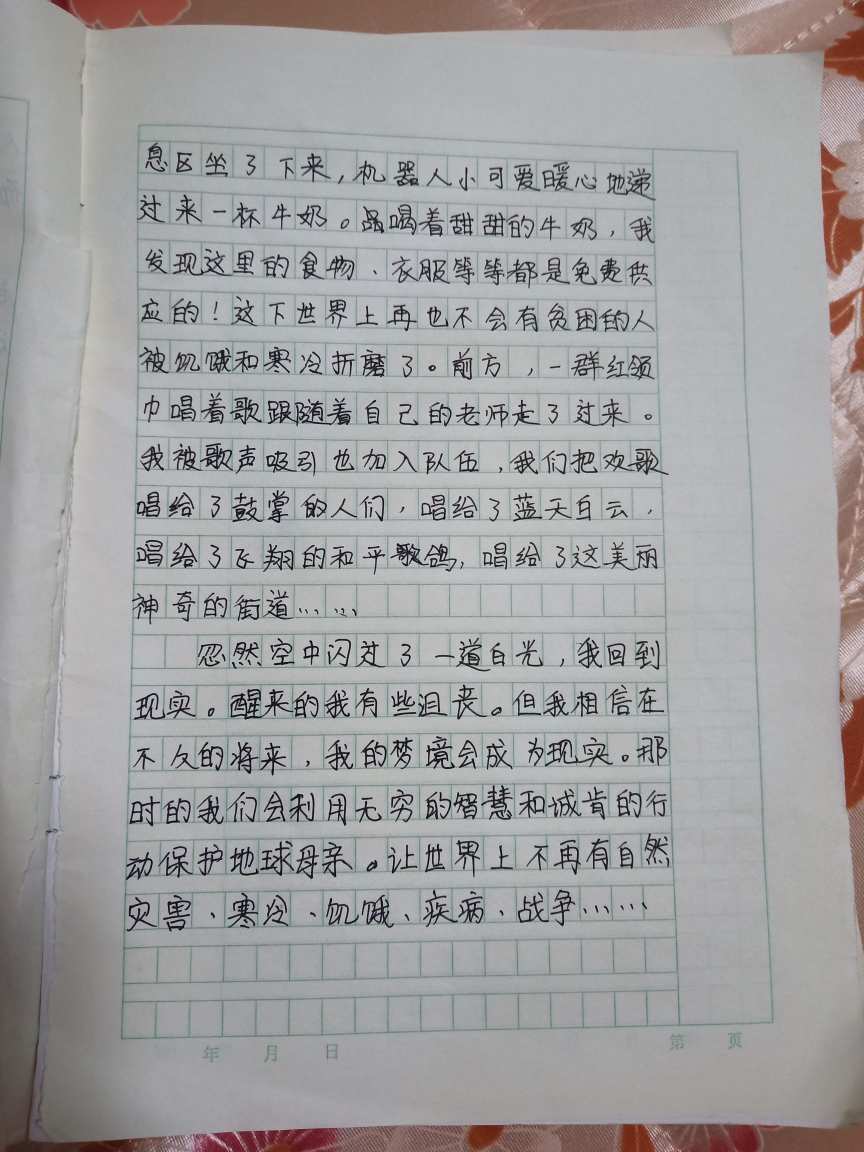 息区坐了下来,机器人小可爱暖心地递
过来一杯牛奶。品喝着甜甜的牛奶,我
发现这里的食物、衣服等等都是免费供
应的!这下世界上再也不会有贫困的人
被饥饿和寒冷折磨了。前方,一群红领
巾唱着歌跟随着自己的老师走了过来。
我被歌声吸引也加入队伍,我们把欢歌
唱给了鼓掌的人们,唱给了蓝天白云,
唱给了飞翔的和平歌鸽,唱给了这美丽
神奇的街道……
忽然空中闪过了一道白光,我回到
现实。醒来的我有些沮丧。但我相信在
不久的将来,我的梦境会成为现实。那
时的我们会利用无穷的智慧和诚肯的行
动保护地球母亲。让世界上不再有自然
灾害、寒冷、饥饿、疾病、战争……
年 月 日
第 页